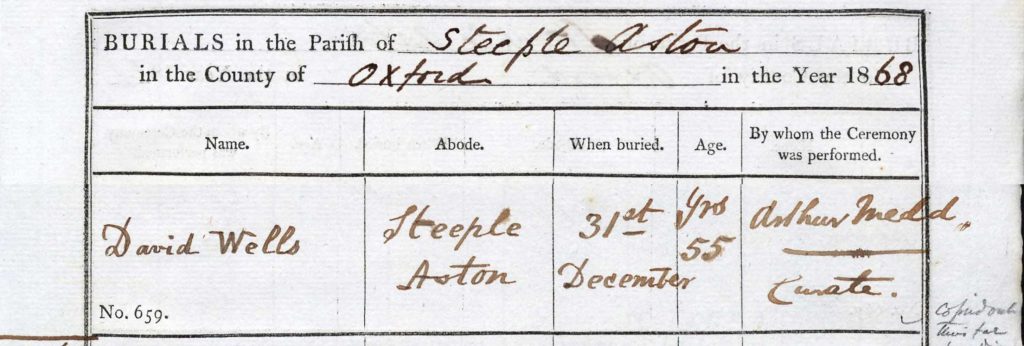 BURIALS in the Parish of Steeple Aston
in the County of Oxford in the Year 1868
Name. Abode. When buried. Age. By whom the Ceremony was performed.
David Wells
Steeple
Aston
31st
December
Yrs
55
Arthur Medd,
Curate.
No. 659.
copied out
thus far